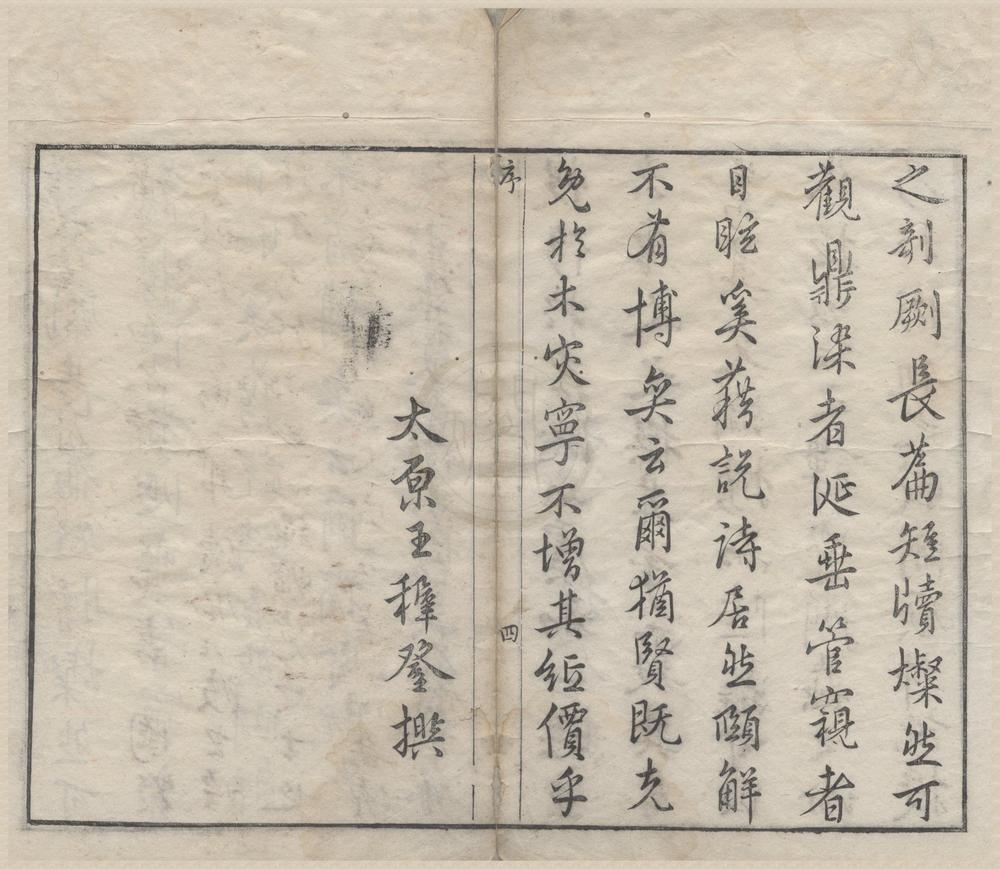 之剞劂長篇短牘燦然可
觀鼎染者涎垂管窺者
目眩奚藉説詩居然頤解
不有博奕云爾猶賢既克
免於木灾寧不增其紙價乎
序
四
太原王穉登撰